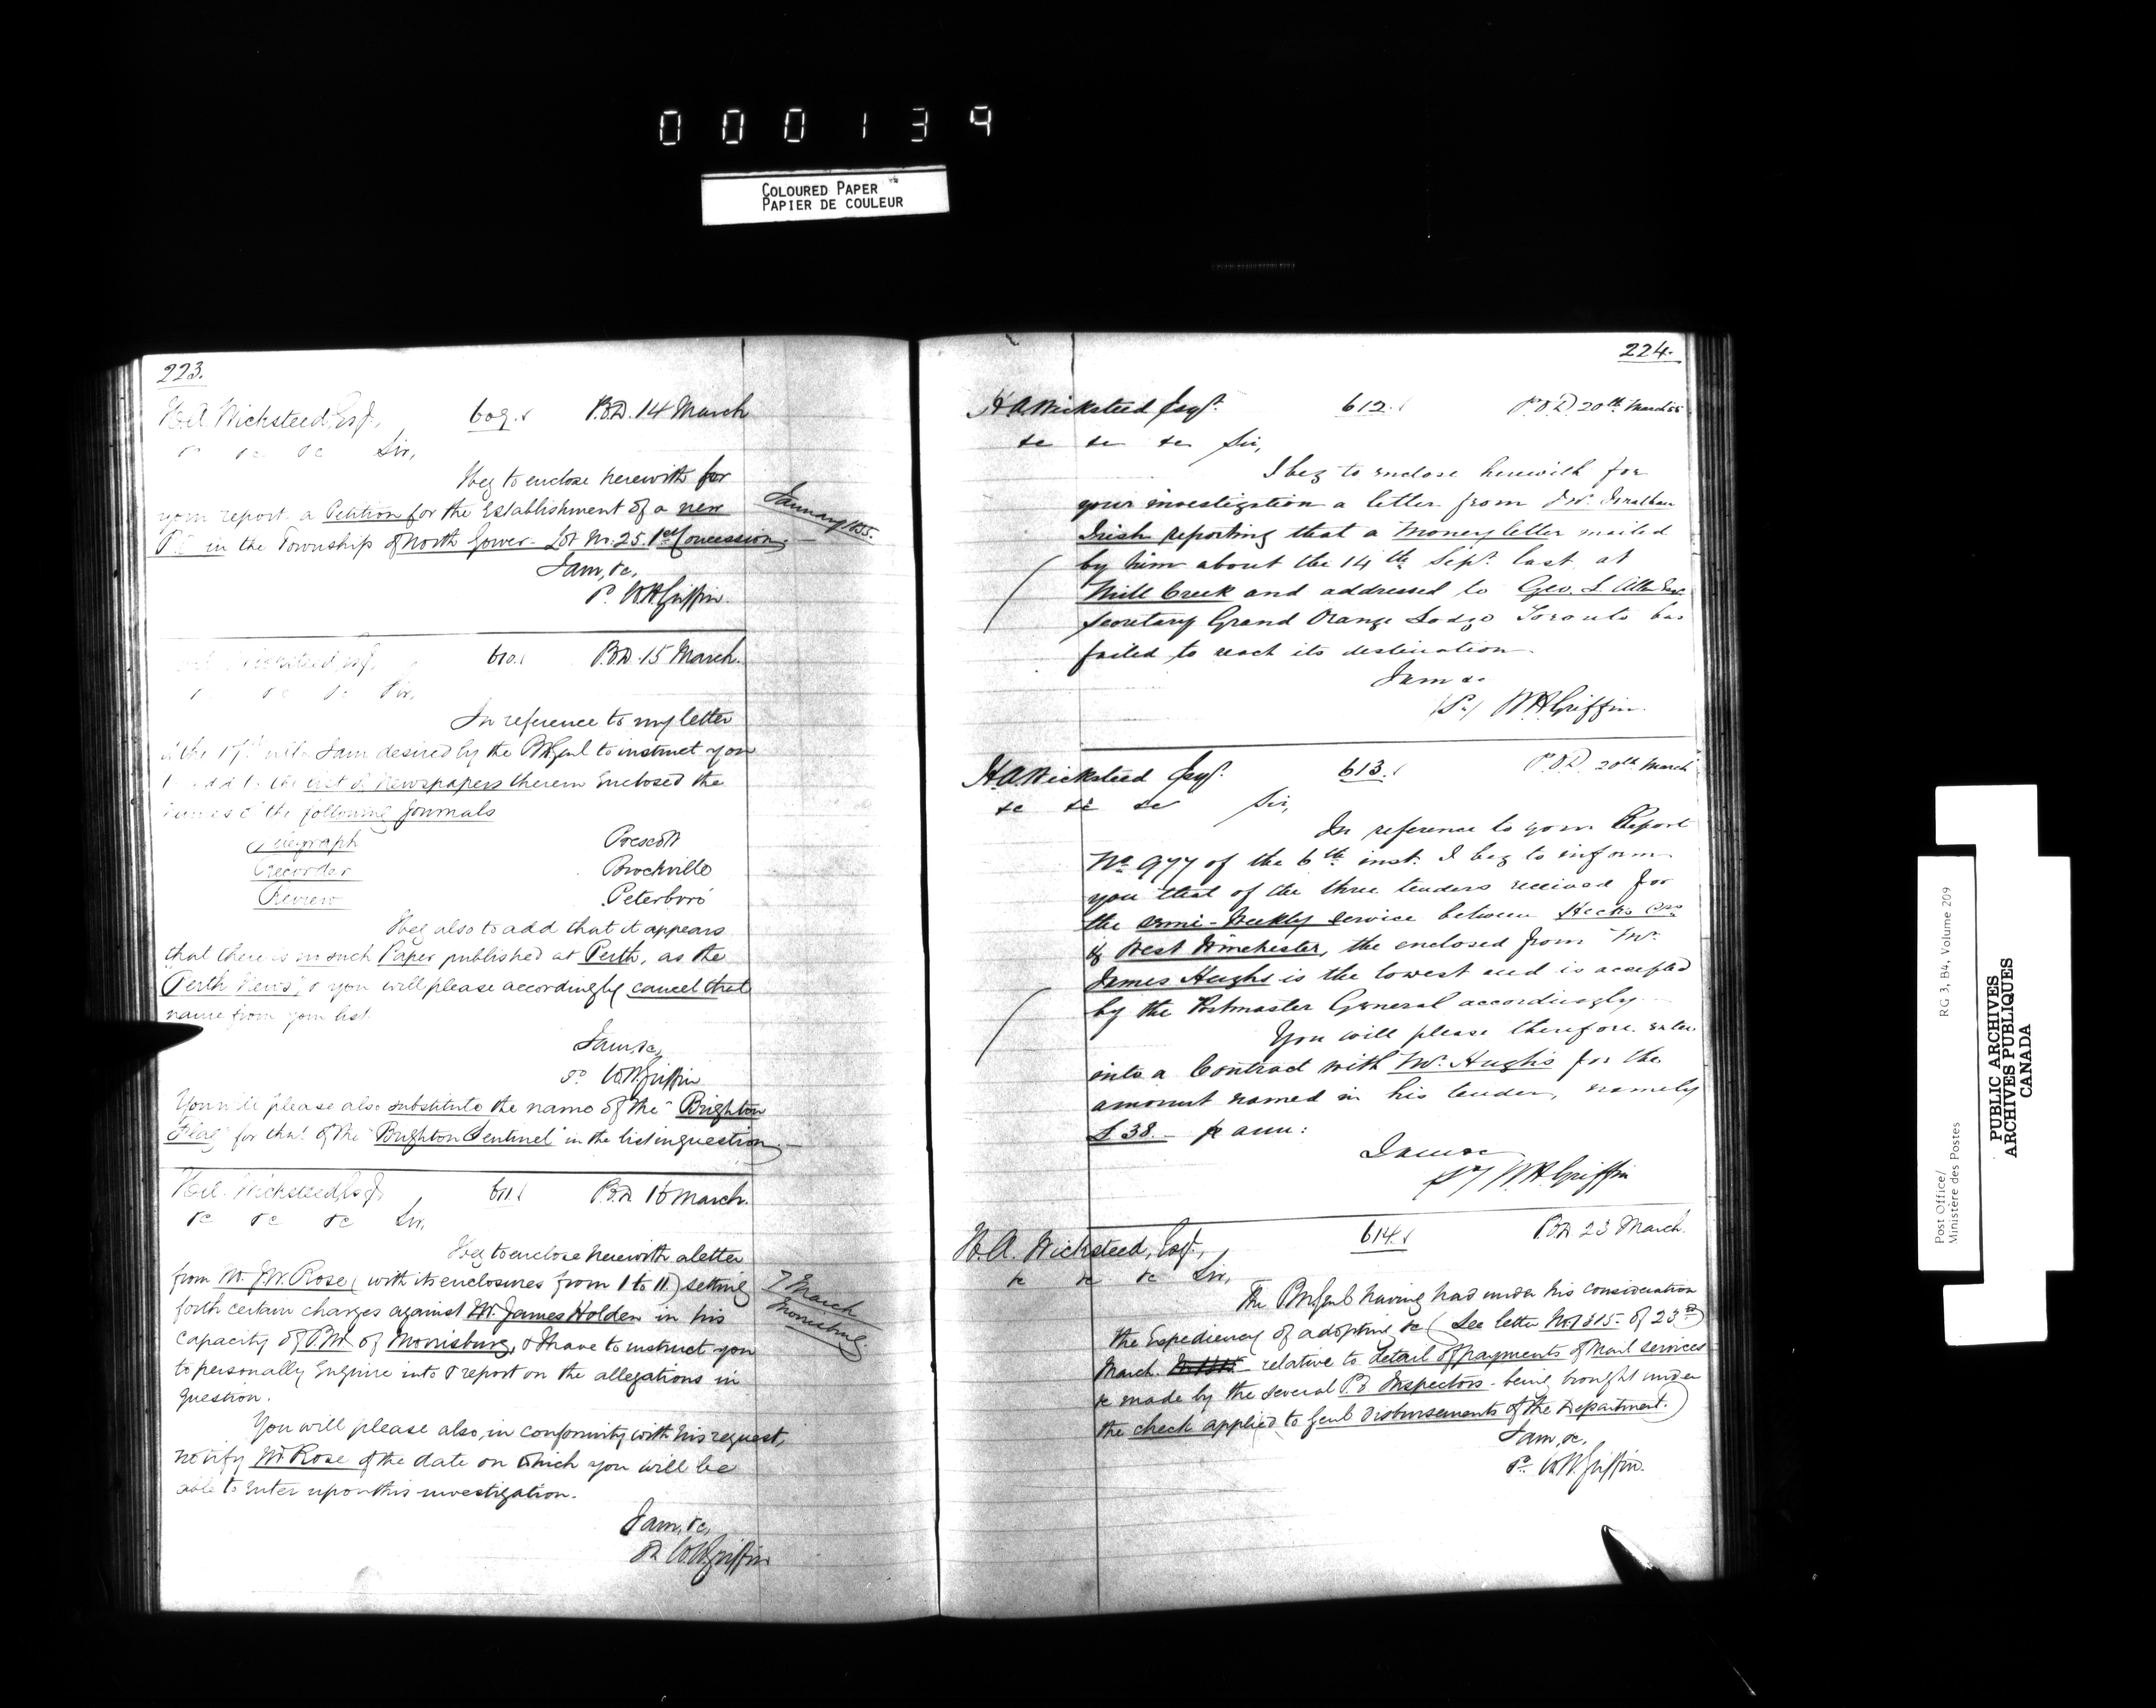 000139
COLOURED PAPER
PAPIER DE COULEUR
223.
H.A. Wicksteed, Esq., 609. P.O.D. 14 March
&c &c &c Sir,
I beg to enclose herewith for
your report a Petition for the Establishment of a new
P.O in the Township of North Gower - Lot No. 25. 1st Concession.
January 1855.
I am, &c,
Sd. W H Griffin.
Wicksteed, Esq. 610. P.O.D. 15 March.
&c &c &c Sir,
In reference to my letter
of the 17th ulto. I am desired by the P M Genl to instruct you
to add to the list of Newspapers therein Enclosed the
names of the following Journals
Telegraph Prescott
Recorder Brockville
Review Peterboro'
I beg also to add that it appears
that there is no such Paper published at Perth, as the
"Perth News", & you will please accordingly cancel that
name from your list.
I am, &c,
Sd. W.H. Griffin
You will please also substitute the name of the "Brighton
Flag" for that of the "Brighton Sentinel" in the list in question.
H.A. Wicksteed, Esq. 611. P.O.D. 16 March.
&c &c &c Sir,
I beg to enclose herewith a letter
from Mr. J.W. Rose (with its enclosures from 1 to 11) setting
forth certain charges against Mr. James Holden in his
Capacity of P.M. of Morrisburg, & I have to instruct you
to personally Enquire into & report on the allegations in
question.
7 March
Morrisburg.
You will please also, in conformity with his request,
notify Mr Rose of the date on which you will be
able to Enter upon this investigation.
I am, &c,
Sd W H Griffin
224.
H.A. Wicksteed Esqr. 612. P.O.D 20th March 55
&c &c &c Sir,
I beg to enclose herewith for
your investigation a letter from Mr. Jonathan
Irish reporting that a Money letter mailed
by him about the 14th Sepr. last at
Mill Creek and addressed to Geo. L Allen Esqr
Secretary Grand Orange Lodge Toronto has
failed to reach its destination.
I am &c
(Sd) W H Griffin.
H.A. Wicksteed Esqr. 613. P.O.D. 20th March
&c &c &c Sir,
In reference to your Report
No 977 of the 6th inst. I beg to inform
you that of the three tenders received for
the semi-weekly service between Heck's Crs
& West Winchester, the enclosed from Mr.
James Hughs is the lowest and is accepted
by the Postmaster General accordingly.
You will please therefore enter
into a Contract with Mr. Hughs for the
amount named in his tender, namely
£38. - pr ann:
I am &c
Sd/ W H Griffin
H.A. Wicksteed, Esq., 614. P.O.D 23 March.
&c &c &c Sir,
The P M Genl having had under his consideration
the Expediency of adopting &c (See letter No. 1315. of 23rd
March. relative to detail of payments of Mail services
&c made by the several P.O Inspectors - being brought under
the check applied to Genl Disbursements of the Department.)
I am, &c.
Sd. W.H. Griffin.
Post Office/
Ministère des Postes
RG 3, B4, Volume 209
PUBLIC ARCHIVES
ARCHIVES PUBLIQUES
CANADA